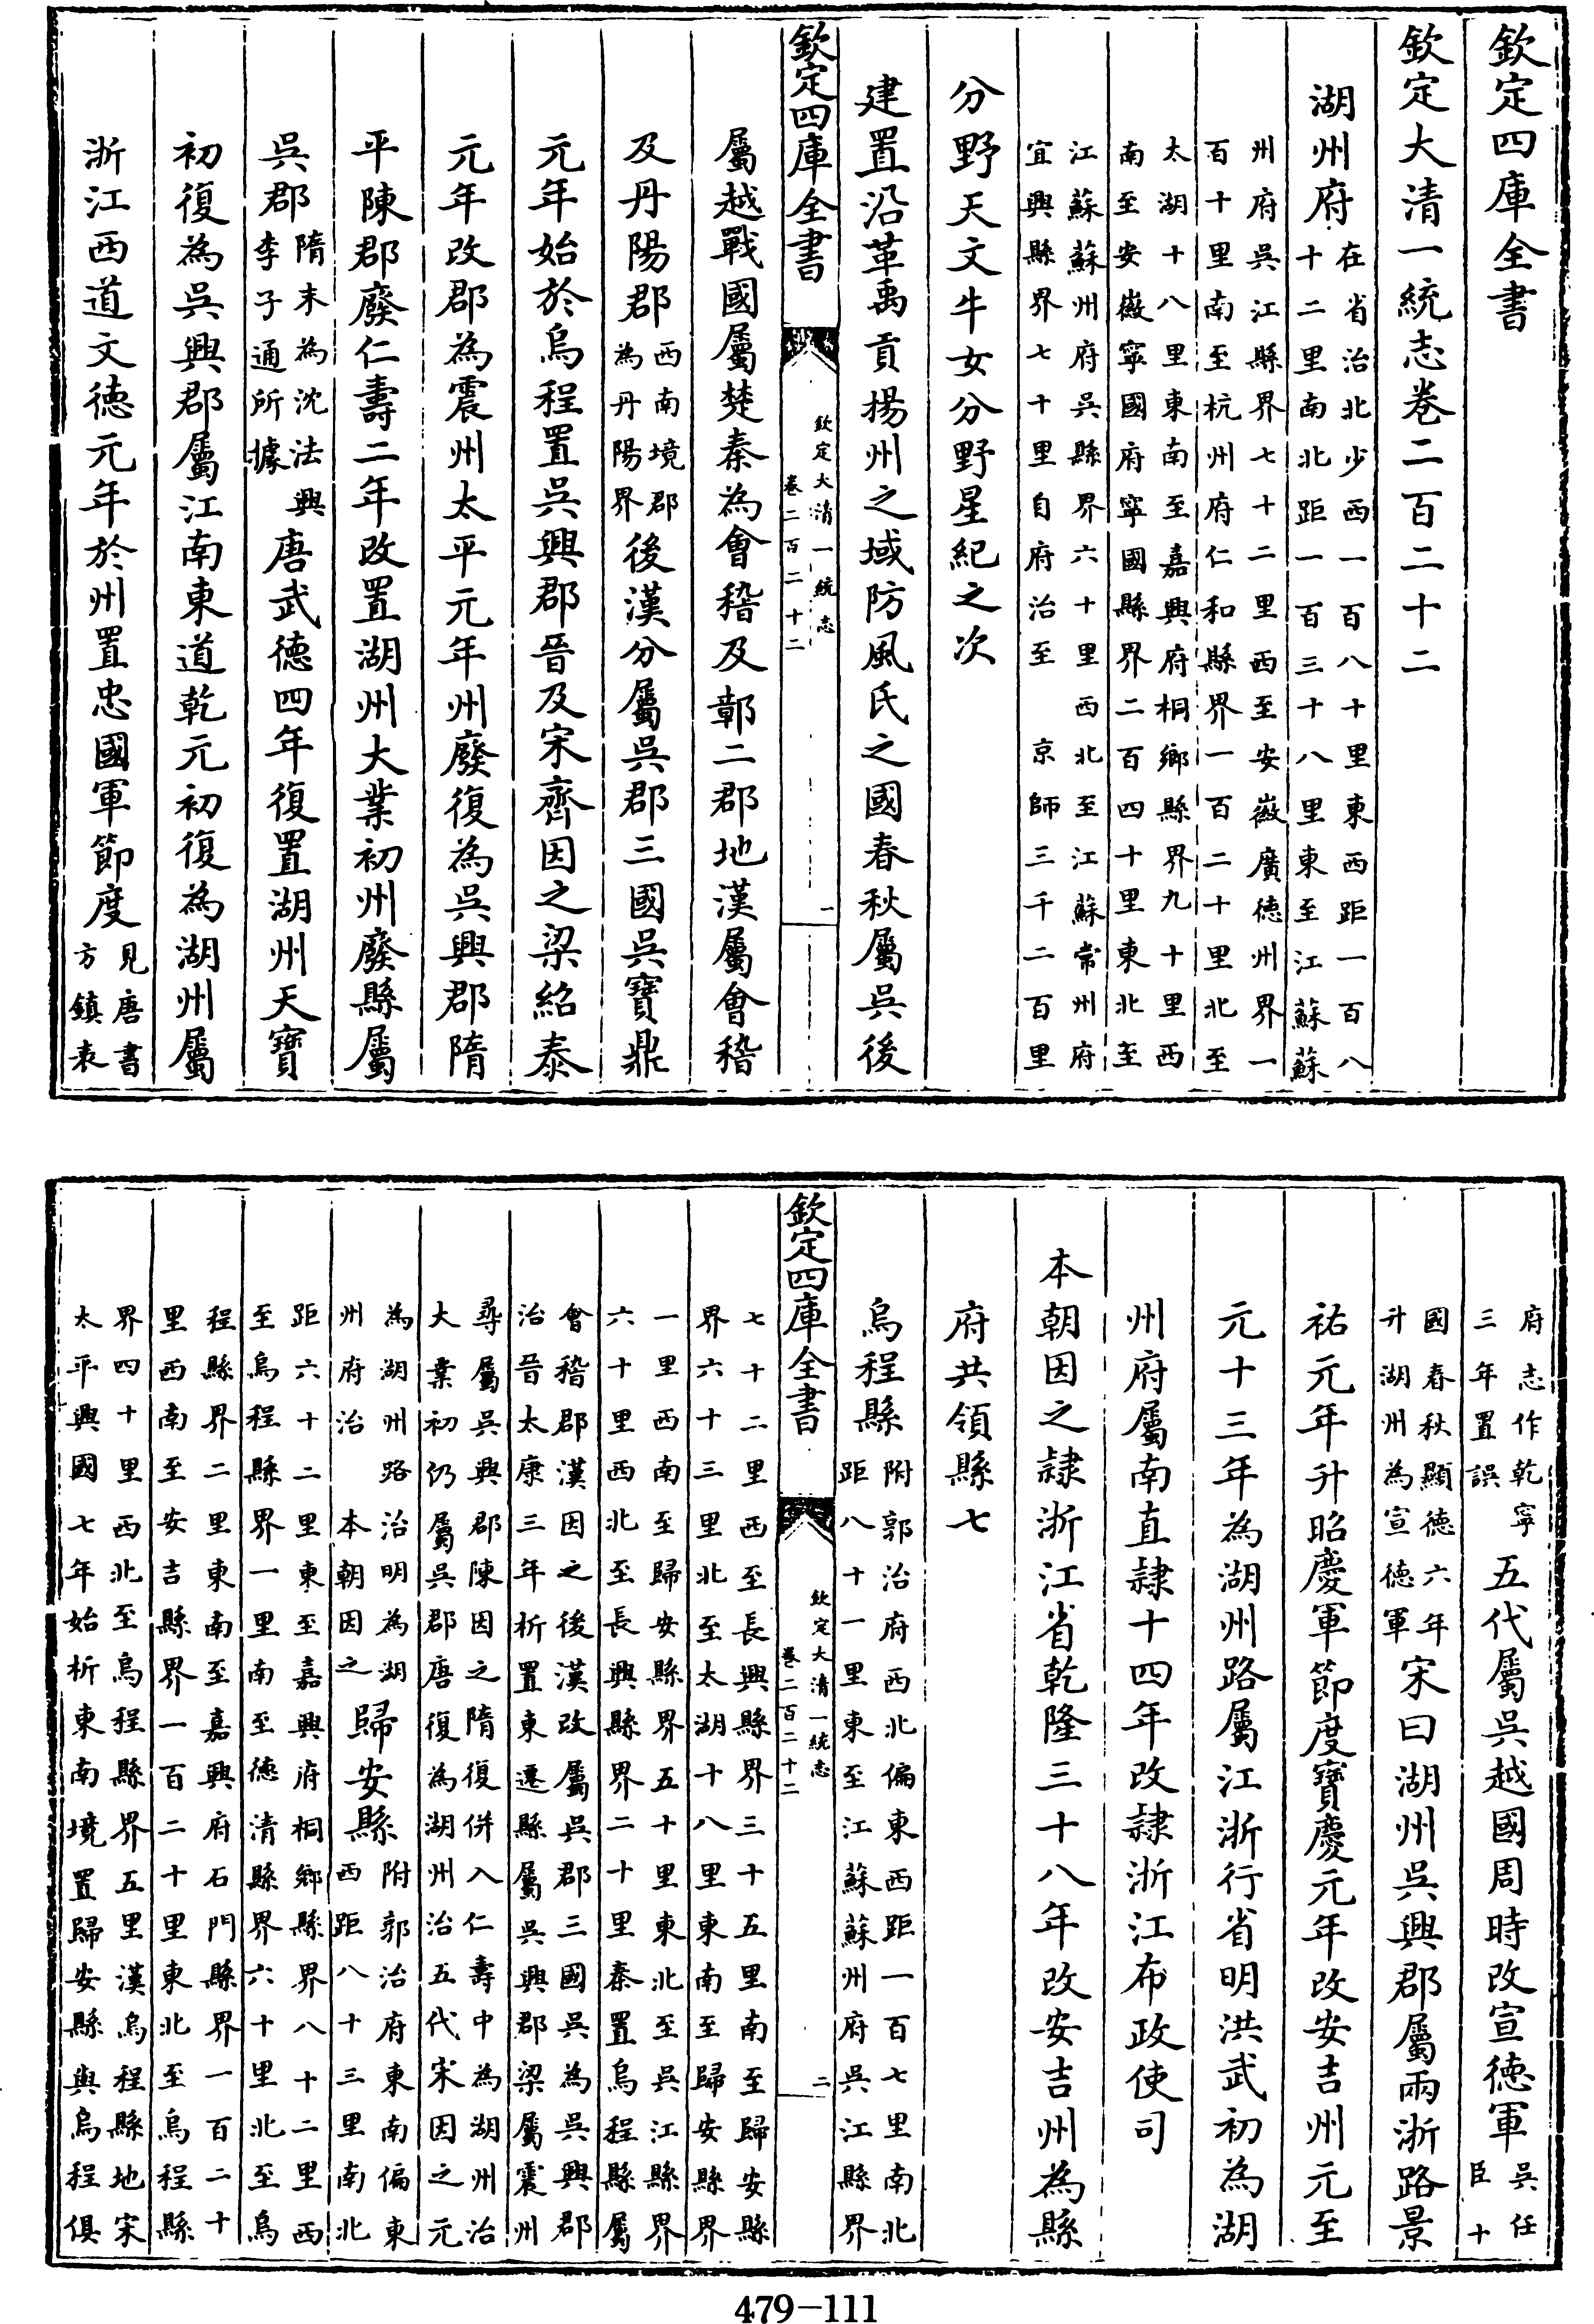 欽定四庫全書
欽定大清一統志卷二百二十二
湖州府在省治北少西一百八十里東西距一百八十二里南北距一百三十八里東至江蘇蘇
州府吳江縣界七十二里西至安徽廣德州界一百十里南至杭州府仁和縣界一百二十里北至
太湖十八里東南至嘉興府桐鄉縣界九十里西南至安徽寧國府寧國縣界二百四十里東北至
江蘇蘇州府吳縣界六十里西北至江蘇常州府宜興縣界七十里自府治至 京師三千二百里
分野天文牛女分野星紀之次
建置沿革禹貢揚州之域防風氏之國春秋屬吳後
欽定四庫全書
欽定大清一統志
卷二百二十二
一
屬越戰國屬楚秦為會稽及鄣二郡地漢屬會稽
及丹陽郡西南境郡為丹陽界後漢分屬吳郡三國吳寶鼎
元年始於烏程置吳興郡晉及宋齊因之梁紹泰
元年改郡為震州太平元年州廢復為吳興郡隋
平陳郡廢仁壽二年改置湖州大業初州廢縣屬
吳郡隋末為沈法興李子通所據唐武德四年復置湖州天寶
初復為吳興郡屬江南東道乾元初復為湖州屬
浙江西道文德元年於州置忠國軍節度見唐書方鎮表
府志作乾寧三年置誤五代屬吳越國周時改宣德軍吳任臣十
國春秋顯德六年升湖州為宣德軍宋曰湖州吳興郡屬兩浙路景
祐元年升昭慶軍節度寶慶元年改安吉州元至
元十三年為湖州路屬江浙行省明洪武初為湖
州府屬南直隸十四年改隸浙江布政使司
本朝因之隸浙江省乾隆三十八年改安吉州為縣
府共領縣七
烏程縣附郭治府西北偏東西距一百七里南北距八十一里東至江蘇蘇州府吳江縣界
欽定四庫全書
欽定大清一統志
卷二百二十二
二
七十二里西至長興縣界三十五里南至歸安縣界六十三里北至太湖十八里東南至歸安縣界
一里西南至歸安縣界五十里東北至吳江縣界六十里西北至長興縣界二十里秦置烏程縣屬
會稽郡漢因之後漢改屬吳郡三國吳為吳興郡治晉太康三年析置東遷縣屬吳興郡梁屬震州
尋屬吳興郡陳因之隋復併入仁壽中為湖州治大業初仍屬吳郡唐復為湖州治五代宋因之元
為湖州路治明為湖州府治 本朝因之歸安縣附郭治府東南偏東西距八十三里南北
距六十二里東至嘉興府桐鄉縣界八十二里西至烏程縣界一里南至德清縣界六十里北至烏
程縣界二里東南至嘉興府石門縣界一百二十里西南至安吉縣界一百二十里東北至烏程縣
界四十里西北至烏程縣界五里漢烏程縣地宋太平興國七年始析東南境置歸安縣與烏程俱
479-111